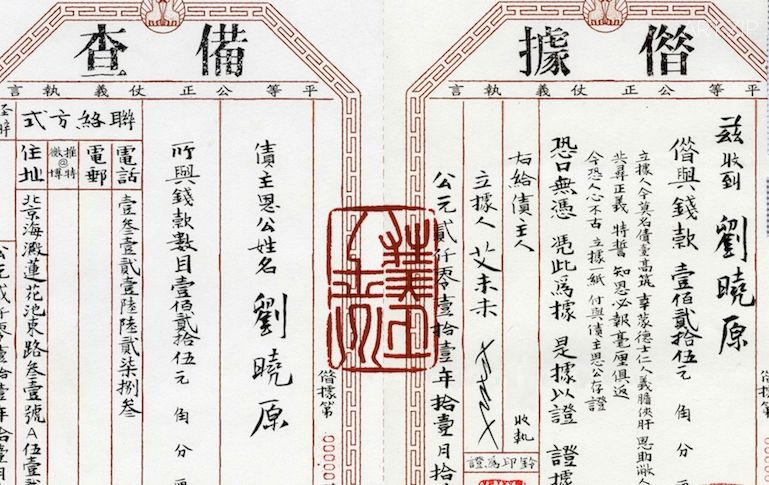 借據
平等公正仗義執言
茲收到 劉曉原
借與錢款 壹佰貳拾伍元 角 分
立據人今莫名債臺高筑 幸蒙德士仁人義膽俠肝 恩助敝人
共昇正義 特誓 知恩必報毫厘俱返
今恐人心不古 立據一紙 付與債主恩公存證
恐口無憑 憑此爲據 是據以證 證據
右給債主人 收執
立據人 艾未未
鈐印爲證
公元貳仟零壹拾壹年拾壹月拾
備查
平等公正仗義執言
借據第
債主恩公姓名 劉曉原
所與錢款數目壹佰貳拾伍元 角 分
聯絡方式
電話 壹叁壹貳壹陸陸貳柒捌叁
電郵
推特@微博
住址 北京海澱蓮花池東路叁壹號A伍壹貳
公元貳仟零壹拾壹年拾壹月